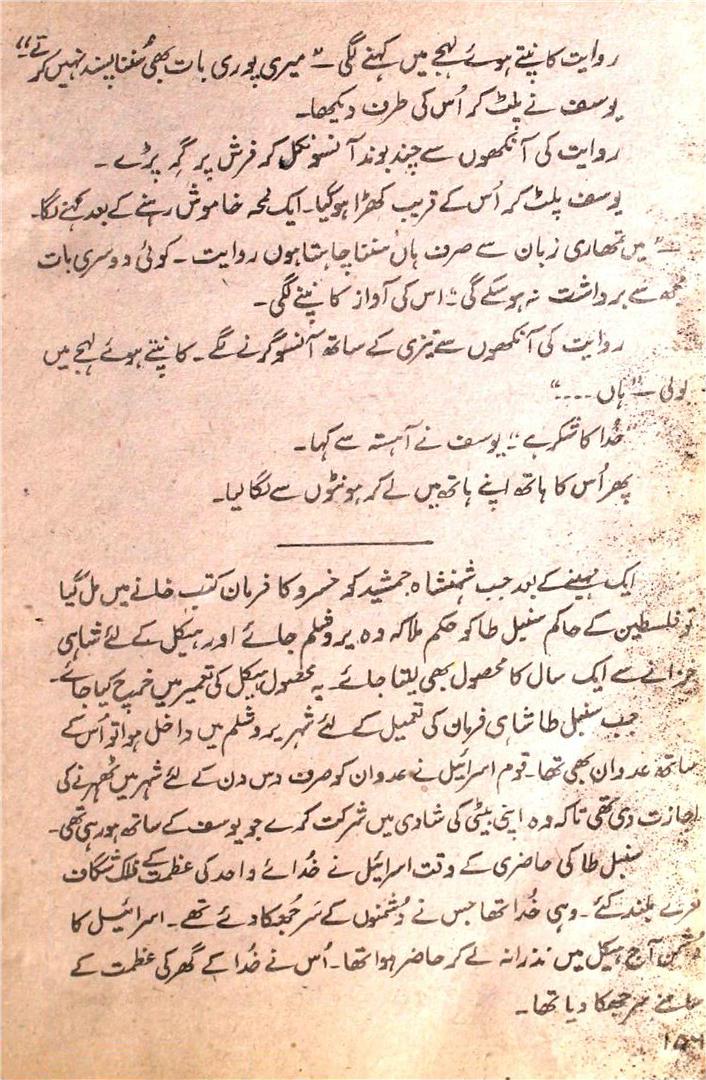 روایت کانپتے ہوئے لہجے میں کہنے لگی۔ "میری پوری بات بھی سُننا پسند نہیں کرتے"
یوسف نے پلٹ کر اُس کی طرف دیکھا۔
روایت کی آنکھوں سے چند بوند آنسو نکل کر فرش پر گر پڑے۔
یوسف پلٹ کر اُس کے قریب کھڑا ہوگیا۔ ایک لمحہ خاموش رہنے کے بعد کہنے لگا۔
"میں تمھاری زبان سے صرف ہاں سُننا چاہتا ہوں روایت۔ کوئی دوسری بات
مجھ سے برداشت نہ ہوسکے گی" اس کی آواز کانپنے لگی۔
روایت کی آنکھوں سے تیزی کے ساتھ آنسو گرنے لگے۔ کانپتے ہوئے لہجے میں
بولی۔ "ہاں ...."
"خُدا کا شکر ہے" یوسف نے آہستہ سے کہا۔
پھر اُس کا ہاتھ اپنے ہاتھ میں لے کر ہونٹوں سے لگا لیا۔
ایک مہینے کے بعد جب شہنشاہ جمشید کو خسرو کا فرمان کتب خانے میں مل گیا
تو فلسطین کے حاکم سنبل طا کو حکم ملا کہ وہ یروشلم جائے اور ہیکل کے لئے شاہی
خزانے سے ایک سال کا محصول بھی لیتا جائے۔ یہ محصول ہیکل کی تعمیر میں خرچ کیا جائے۔
جب سنبل طا شاہی فرمان کی تعمیل کے لئے شہر یروشلم میں داخل ہوا تو اُس کے
ساتھ عدوان بھی تھا۔ قوم اسرائیل نے عدوان کو صرف دس دن کے لئے شہر میں ٹھہرنے کی
اجازت دی تھی تاکہ وہ اپنی بیٹی کی شادی میں شرکت کرے جو یوسف کے ساتھ ہورہی تھی۔
سنبل طا کی حاضری کے وقت اسرائیل نے خُدائے واحد کی عظمت کے فلک شگاف
نعرے بلند کئے۔ وہی خُدا تھا جس نے دُشمنوں کے سَر جُھکا دئے تھے۔ اسرائیل کا
دُشمن آج ہیکل میں نذرانہ لے کر حاضر ہوا تھا۔ اُس نے خُدا کے گھر کی عظمت کے
سامنے سر جھکا دیا تھا۔
۱۵۶